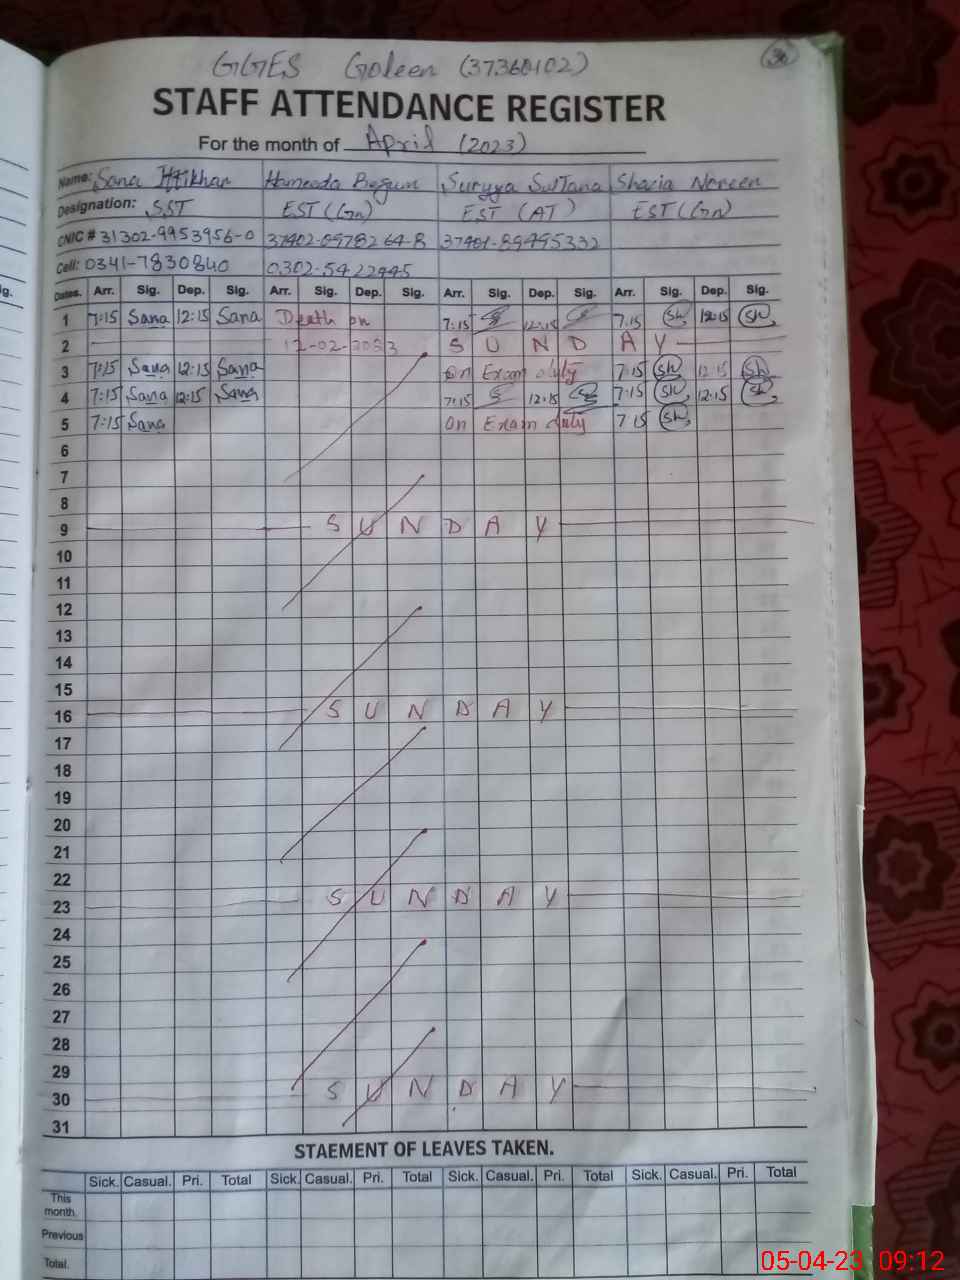 GGES Goleen (37360102)
30
STAFF ATTENDANCE REGISTER
For the month of April (2023)
Name: Sana Iftikhar Humeeda Begum Suryya Sultana Shazia Noreen
Designation: SST EST (Gn) EST (AT) EST (Gn)
CNIC # 31302-9953956-0 37402-0978264-8 37401-89495332
Cell: 0341-7830840 0302-5422445
Dates. Arr. Sig. Dep. Sig. Arr. Sig. Dep. Sig. Arr. Sig. Dep. Sig. Arr. Sig. Dep. Sig.
1 7:15 Sana 12:15 Sana Death on 7:15 12:15 7:15 Sh 12:15 Sh
2 12-02-2023 S U N D A Y
3 7:15 Sana 12:15 Sana On Exam duty 7:15 Sh 12:15 Sh
4 7:15 Sana 12:15 Sana 7:15 12:15 7:15 Sh 12:15 Sh
5 7:15 Sana On Exam duty 7:15 Sh
6
7
8
9 S U N D A Y
10
11
12
13
14
15
16 S U N D A Y
17
18
19
20
21
22
23 S U N D A Y
24
25
26
27
28
29
30 S U N D A Y
31
STAEMENT OF LEAVES TAKEN.
Sick. Casual. Pri. Total Sick. Casual. Pri. Total Sick. Casual. Pri. Total Sick. Casual. Pri. Total
This
month.
Previous
Total.
05-04-23 09:12